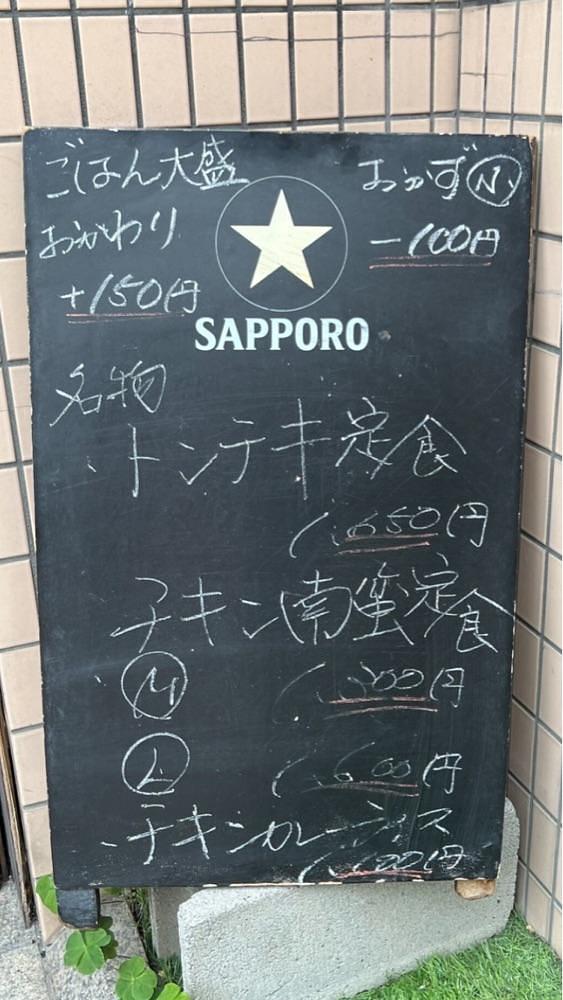 ごはん大盛
おかわり
+150円
おかず小
-100円
SAPPORO
名物
、トンテキ定食
1,650円
チキン南蛮定食
M 1,300円
L 1,600円
、チキンカレーライス
円